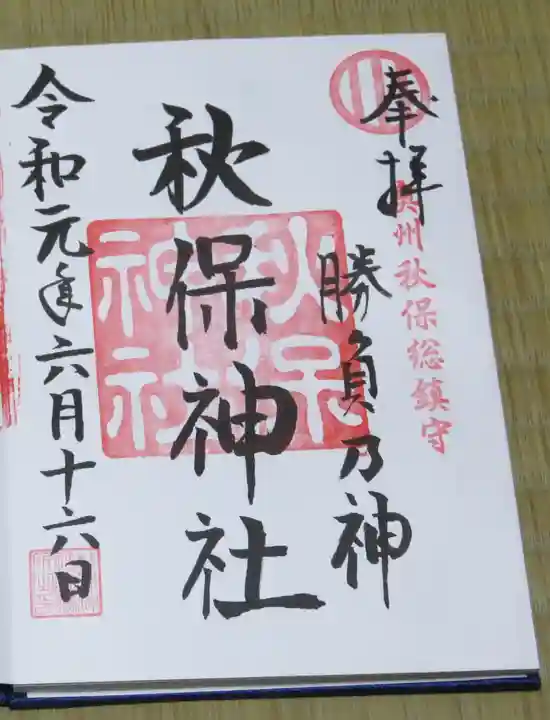 奉拝
奥州秋保総鎮守
勝負乃神
秋保神社
秋保神社
令和元年六月十六日